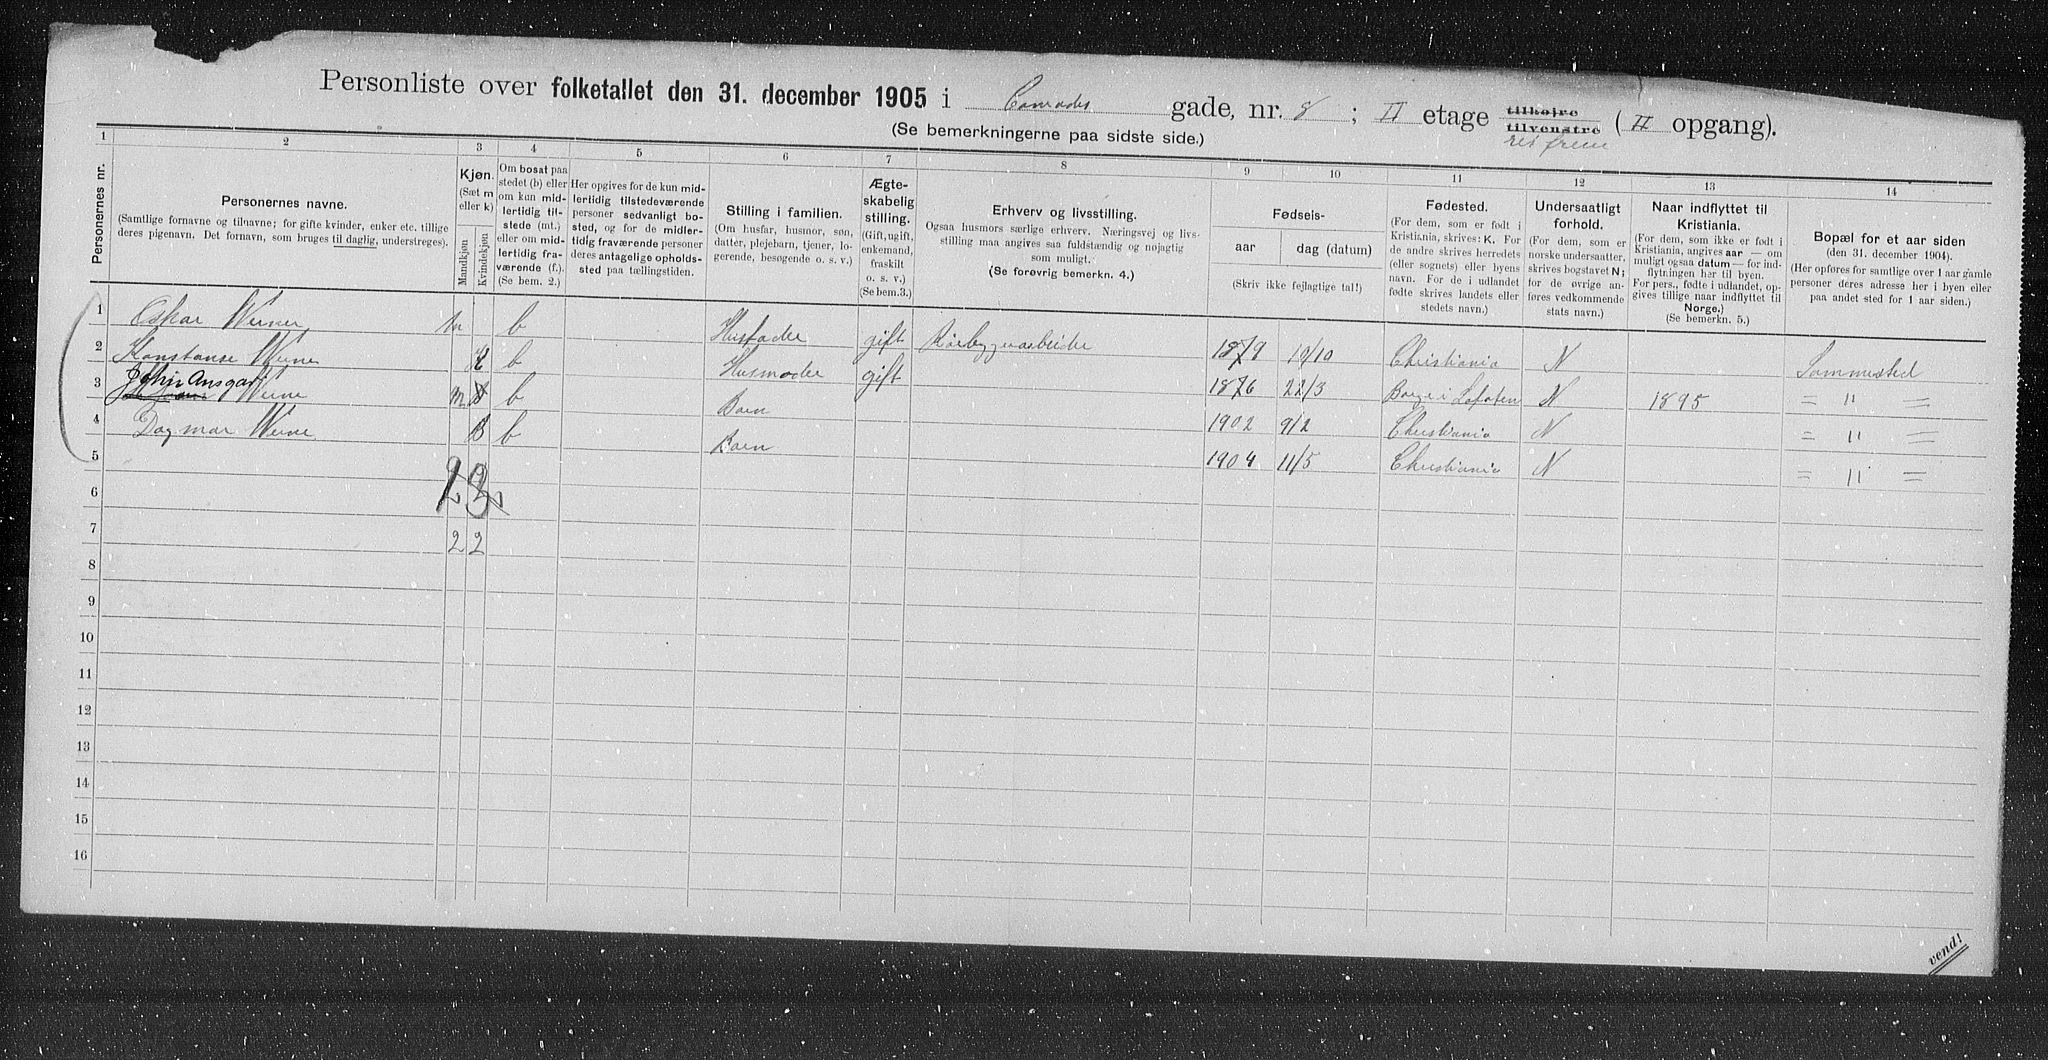 Personliste over folketallet den 31. december 1905 i Conrads gade, nr. 8 ; II etage tilhøire tilvenstre (II opgang).
(Se bemerkningerne paa sidste side.)
1 2 3 4 5 6 7 8 9 10 11 12 13 14
Personernes nr.
Personernes navne.
(Samtlige fornavne og tilnavne; for gifte kvinder, enker etc. tillige
deres pigenavn. Det fornavn, som bruges til daglig, understreges).
Kjøn.
(Sæt m
eller k)
Mandkjøn
Kvindekjøn
Om bosat paa
stedet (b) eller
om kun mid-
lertidig til-
stede (mt.)
eller om mid-
lertidig fra-
værende (f.).
(Se bem. 2.)
Her opgives for de kun mid-
lertidig tilstedeværende
personer sedvanligt bo-
sted, og for de midler-
tidig fraværende personer
deres antagelige opholds-
sted paa tællingstiden.
Stilling i familien.
(Om husfar, husmor, søn,
datter, plejebarn, tjener, lo-
gerende, besøgende o. s. v.)
Ægte-
skabelig
stilling.
(Gift, ugift,
enkemand,
fraskilt
o. s. v.)
(Se bem.3.)
Erhverv og livsstilling.
Ogsaa husmors særlige erhverv. Næringsvej og livs-
stilling maa angives saa fuldstændig og nøjagtig
som muligt.
(Se forøvrig bemerkn. 4.)
Fødseis-
aar
dag (datum)
(Skriv ikke fejlagtige tal!)
Fødested.
(For dem, som er født i
Kristiania, skrives: K. For
de andre skrives herredets
(eller sognets) eller byens
navn. For de i udlandet
fødte skrives landets eller
stedets navn.)
Undersaatligt
forhold.
(For dem, som er
norske undersaatter,
skrives bogstavet N;
for de øvrige an-
føres vedkommende
stats navn.)
Naar indflyttet til
Kristiania.
(For dem, som ikke er født i
Kristiania, angives aar — om
muligt ogsaa datum — for ind-
flytningen her til byen.
For pers., fødte i udlandet, op-
gives tillige naar indflyttet til
Norge.)
(Se bemerkn. 5.)
Bopæl for et aar siden
(den 31. december 1904).
(Her opføres for samtlige over 1 aar gamle
personer deres adresse her i byen eller
paa andet sted for 1 aar siden.)
1 Oskar Werner m b Husfader gift Rørlæggerarbeider 1879 10/10 Christiania N Sammested
2 Konstanse Werne K b Husmoder gift 1876 22/3 Borge i Lofoten N 1895 = " =
3 John Ansgar Werne m b Barn 1902 9/2 Christiania N = " =
4 Dagmar Werne B b Barn 1904 11/5 Christiania N = " =
5
6
7 2 2
8
9
10
11
12
13
14
15
16
vend!